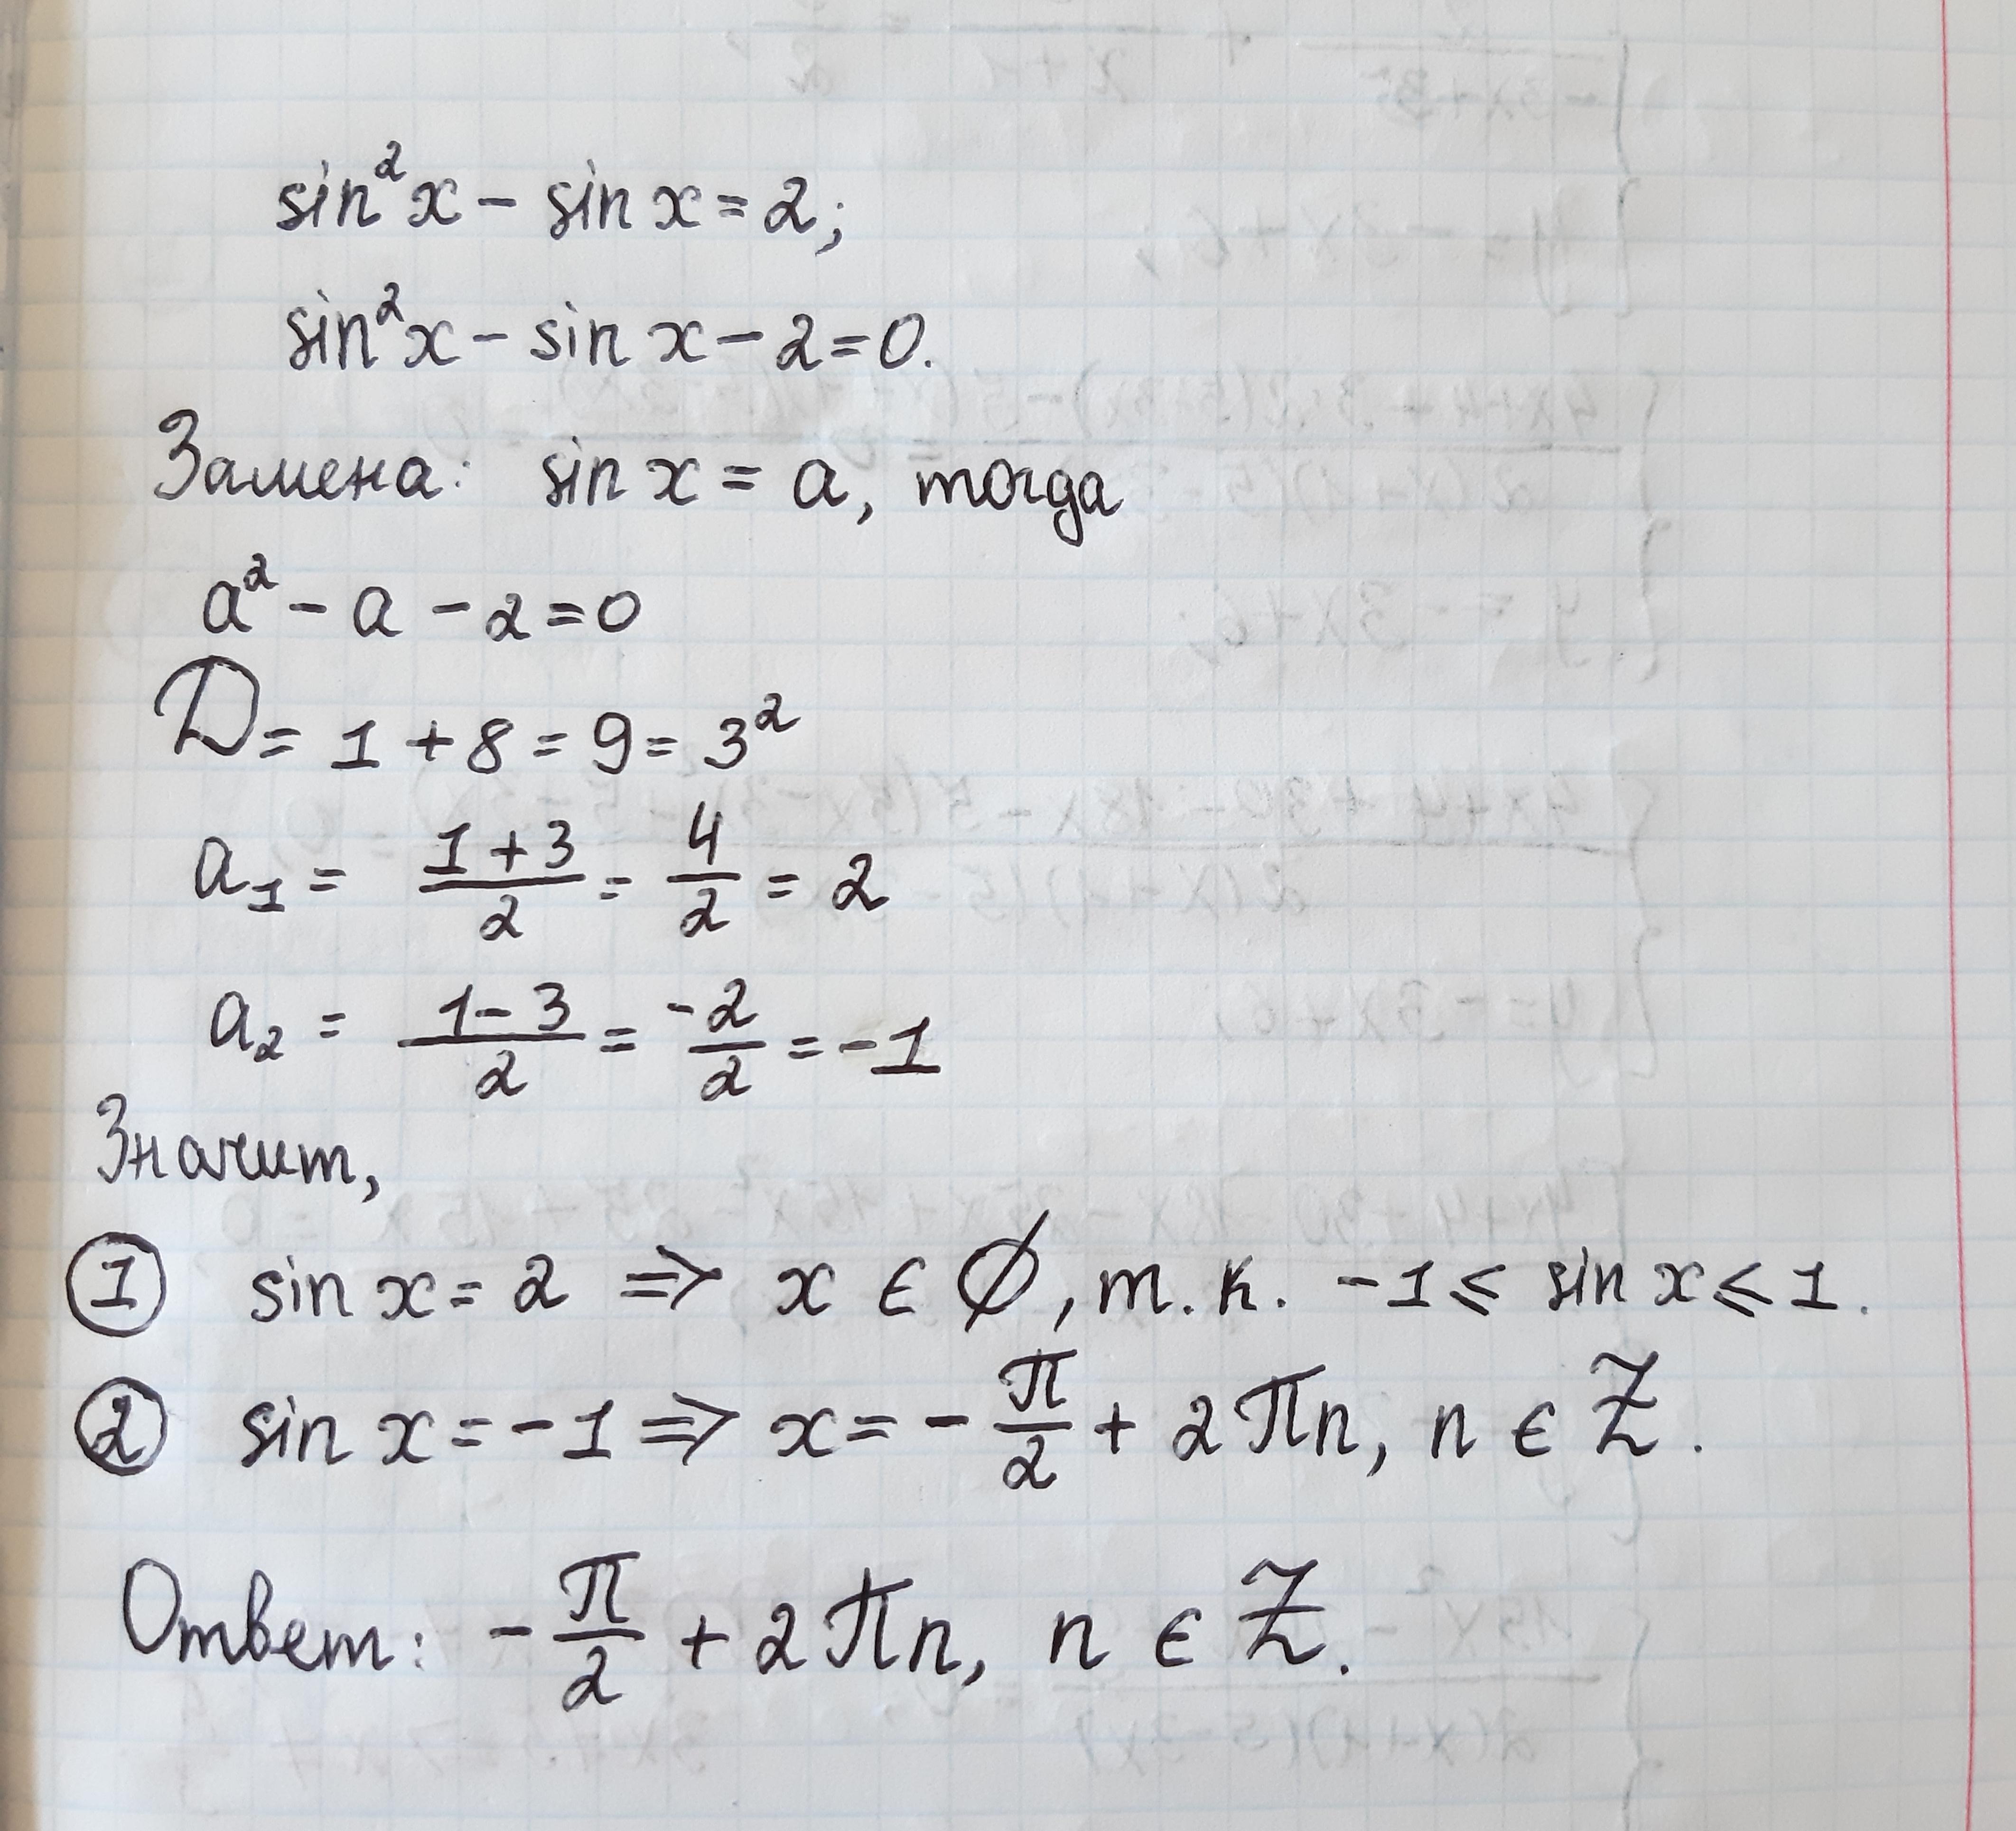 sin²x - sin x = 2;
sin²x - sin x - 2 = 0.
Замена: sin x = a, тогда
a² - a - 2 = 0
D = 1 + 8 = 9 = 3²
a₁ = (1 + 3)/2 = 4/2 = 2
a₂ = (1 - 3)/2 = -2/2 = -1
Значит,
① sin x = 2 ⇒ x ∈ ∅, т. к. -1 ⩽ sin x ⩽ 1.
② sin x = -1 ⇒ x = -π/2 + 2πn, n ∈ Z.
Ответ: -π/2 + 2πn, n ∈ Z.